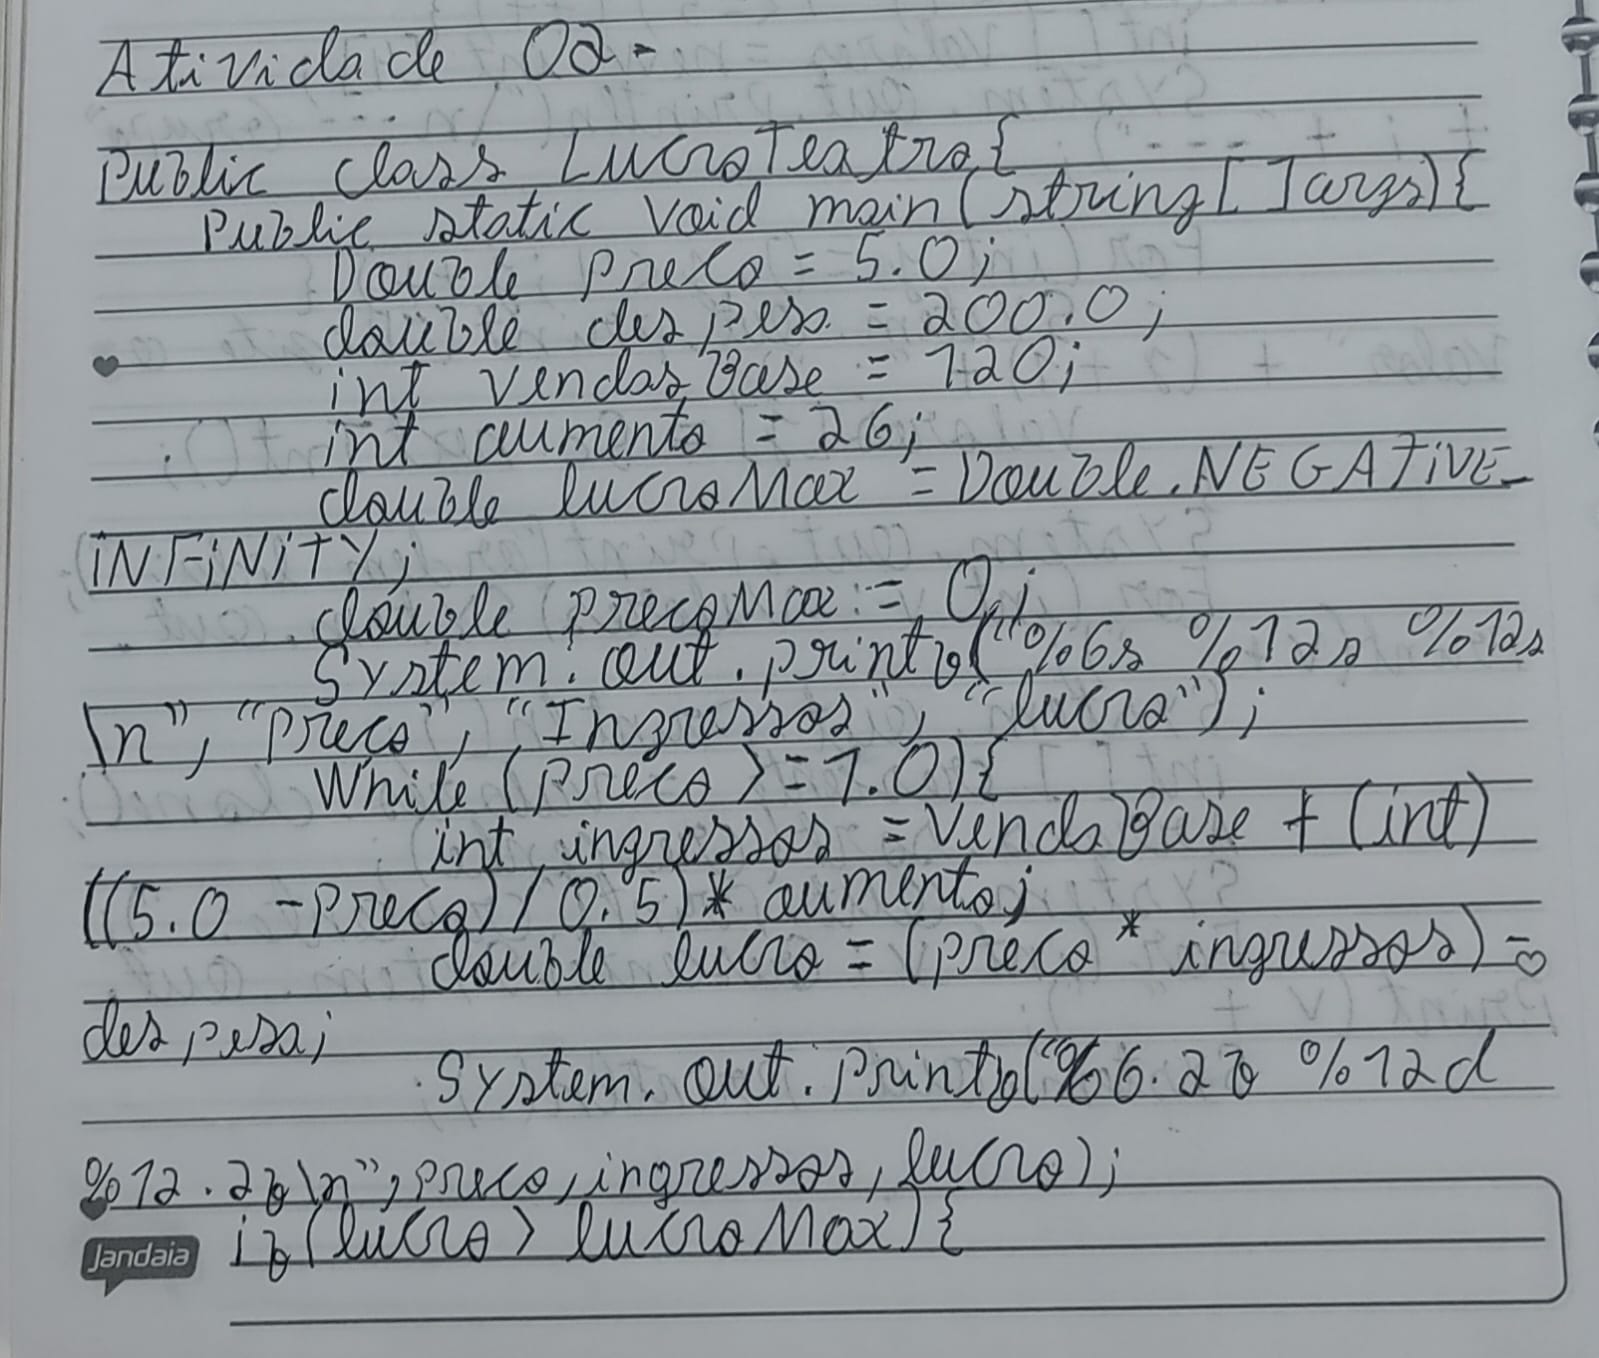 Atividade 02-
Public class LucroTeatro{
Public static void main(string[]args){
Double preco = 5.0;
double despesa = 200.0;
int vendasBase = 120;
int aumento = 26;
double lucroMax = Double.NEGATIVE_
INFINITY;
double precoMax = 0;
System.out.printf("%6s %12s %12s
\n", "preco", "Ingressos", "lucro");
While (preco >= 1.0){
int ingressos = VendaBase + (int)
((5.0 - preco) / 0.5) * aumento;
double lucro = (preco * ingressos) -
despesa;
System.out.printf("%6.2f %12d
%12.2f\n", preco, ingressos, lucro);
if (lucro > lucroMax) {
Jandaia